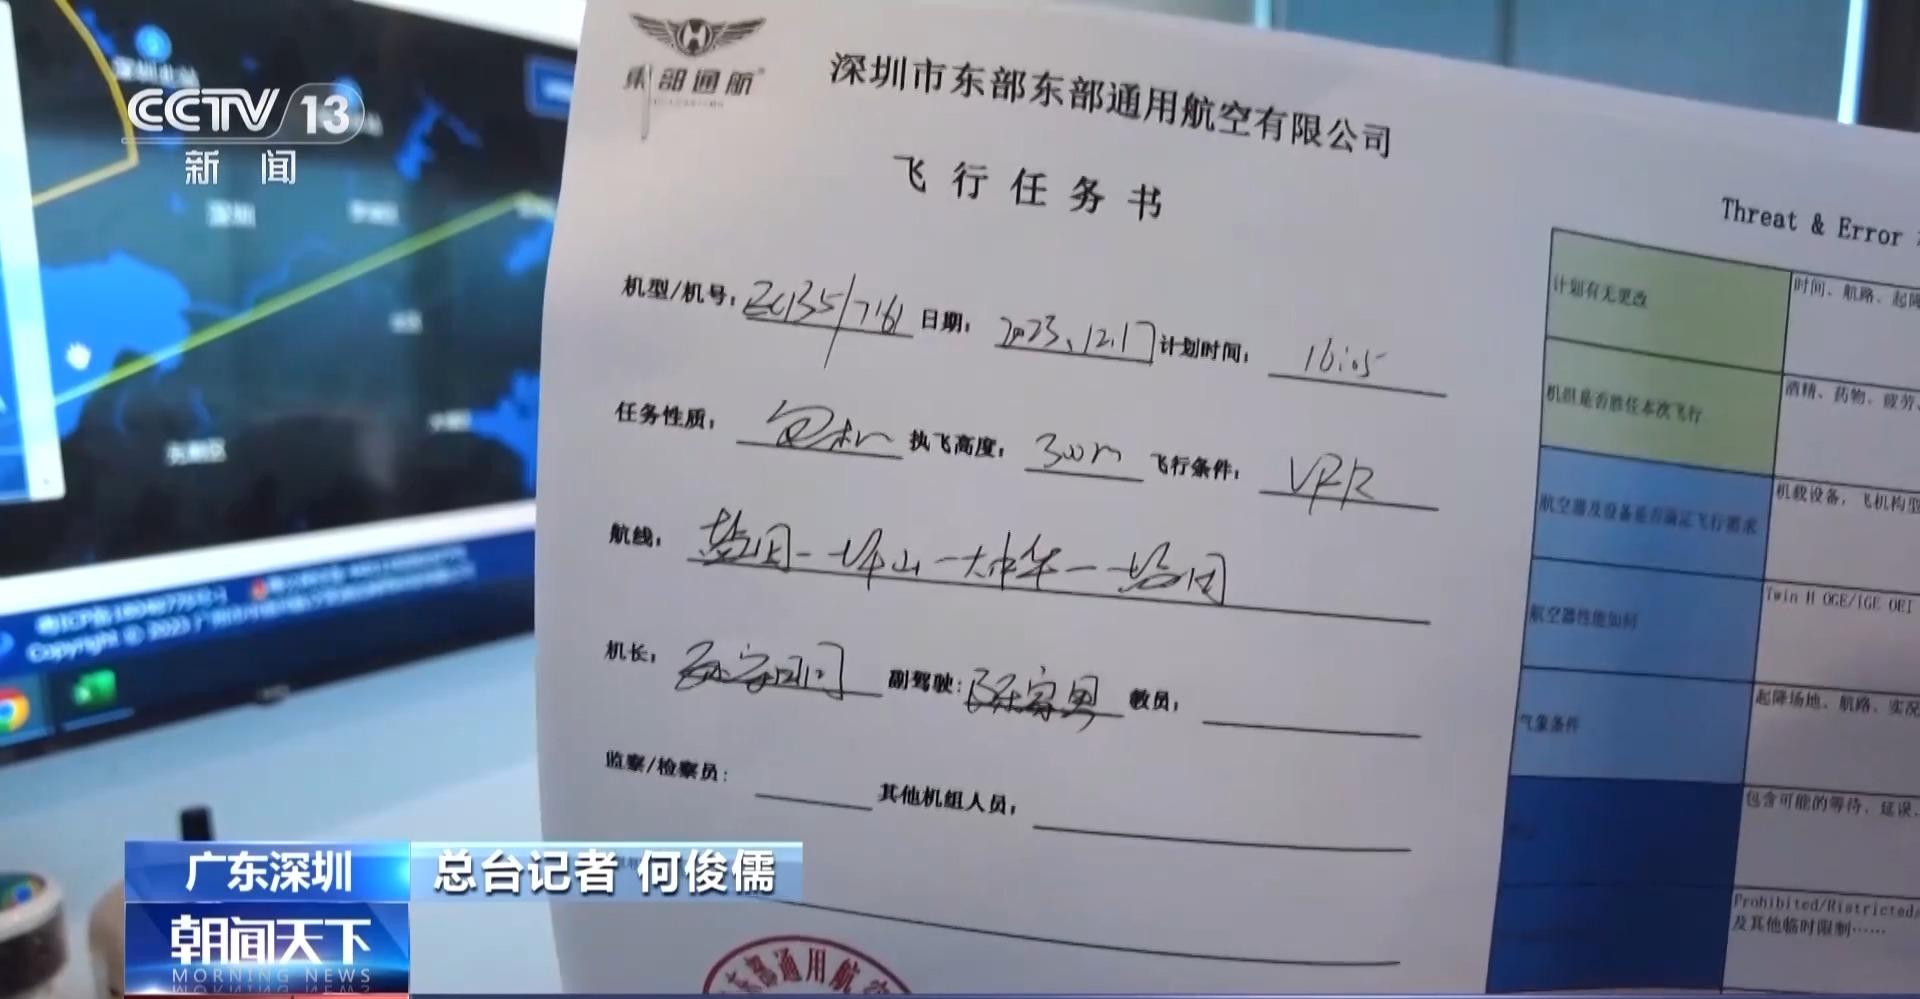 CCTV 13
新闻
东部通航
深圳市东部东部通用航空有限公司
飞行任务书
Threat & Error
机型/机号： EC135/7161 日期： 2023.12.17 计划时间： 16:05
任务性质： 包机 执飞高度： 300m 飞行条件： VFR
航线： 盐田-坪山-大中华-盐田
机长： 副驾驶： 陈富男 教员：
监察/检察员： 其他机组人员：
计划有无更改 时间、航路、起降
机组是否胜任本次飞行 酒精、药物、疲劳、
航空器及设备是否满足飞行需求 机载设备，飞机构型
航空器性能如何 Twin H OGE/IGE OEI
气象条件 起降场地、航路、实况
包含可能的等待、延误、
Prohibited/Ristricted/
及其他临时限制……
东部通用航空
深圳
Copyright © 2023
广东深圳 总台记者 何俊儒
朝闻天下
MORNING NEWS